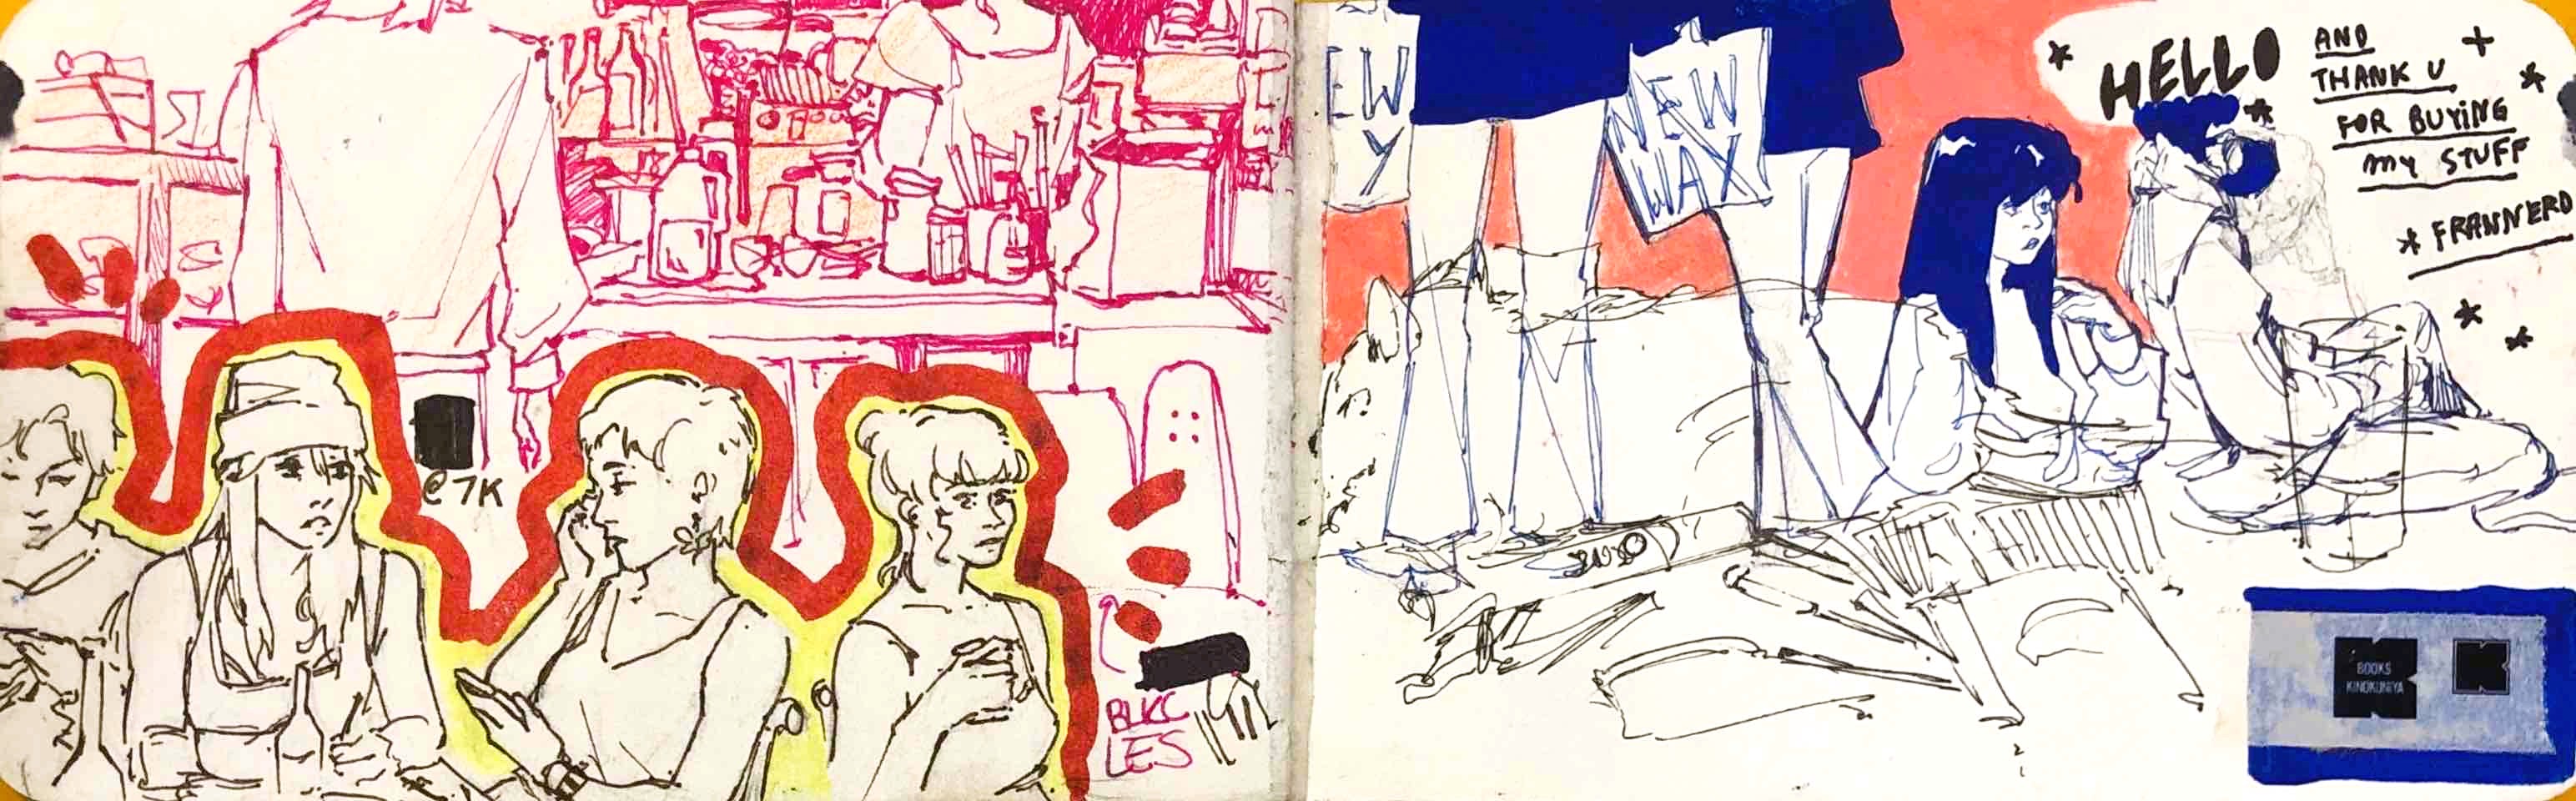 @7K
BLKC
LES
EW
Y
NEW
WAY
HELLO
AND
THANK U
FOR BUYING
MY STUFF
* FRANNERD
BOOKS
KINOKUNIYA